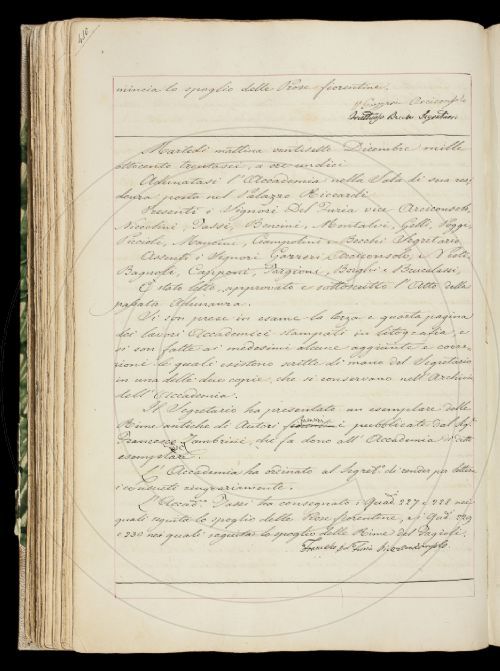 410
mincia lo spoglio delle Prose fiorentine.
Arciconsolo
Martedì mattina ventisette Dicembre mille
ottocento trentasei, a ore undici
Adunatasi l'Accademia nella Sala di sua resi
denza posta nel Palazzo Riccardi
Presenti i Signori Del Furia vice Arciconsolo,
Niccolini, Tassi, Bencini, Montalvi, Gelli, Poggi,
Piccioli, Mancini, Ciampolini e Becchi Segretario
Assenti i Signori Gazzeri Arciconsolo, e
Bagnoli, Capponi, Targioni, Borghi e Brucalassi,
È stato letto, approvato e sottoscritto l'Atto della
passata Adunanza.
Si son prese in esame la terza e quarta pagina
dei lavori Accademici stampati in litografia, e
si son fatte ai medesimi alcune aggiunte e corre
zioni le quali esistono scritte di mano del Segretario
in una delle due copie, che si conservano nell'Archivio
dell'Accademia.
Il Segretario ha presentato un esemplare delle
Rime antiche di Autori i pubblicate dal Sig.
Francesco Zambrini, che fa dono all'Accademia
esemplare.
L'Accademia ha ordinato al Segret.o di render per lettera
i consueti ringraziamenti.
L'Accad.o Tassi ha consegnato i Quad. 227 e 228 nei
quali seguita lo spoglio delle Prose fiorentine, e i Quad. 229
e 230 nei quali seguita lo spoglio delle Rime del Fagioli.
Francesco del Furia Vice Arciconsolo